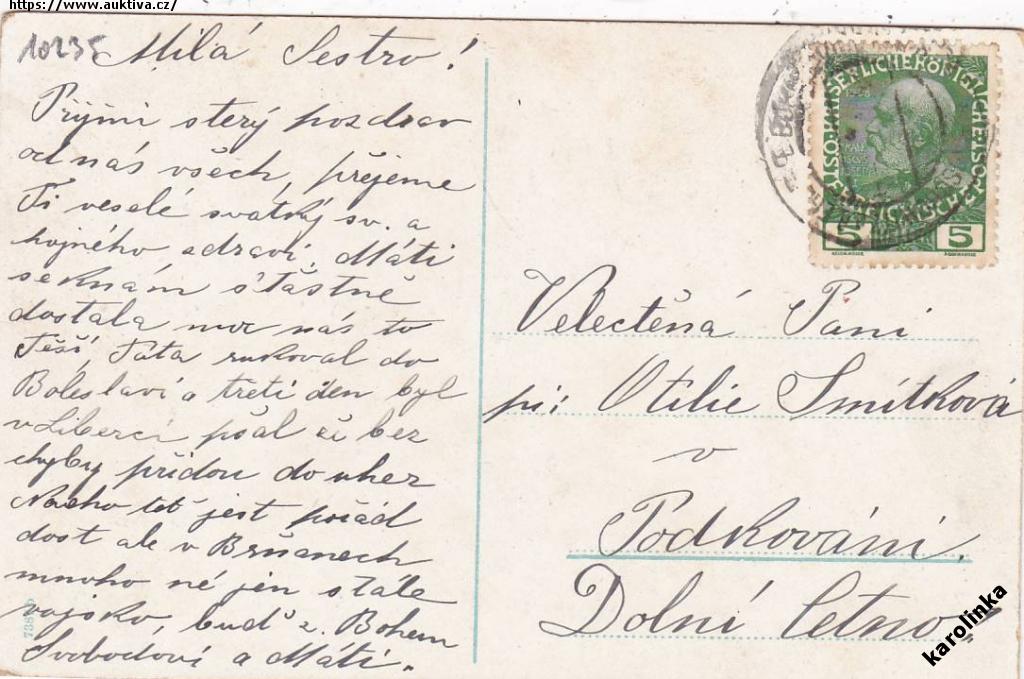 https://www.auktiva.cz/
10235
Milá Sestro!
Přijmi sterý pozdrav
od nás všech, přejeme
Ti veselé svátky sv. a
hojného zdraví. Máti
se k nám šťastně
dostala moc nás to
Těší, Táta rukoval do
Boleslavi a třetí den byl
v Liberci psal že bez
chyby přídou do uher
teď jest pořád
dost ale v Brňanech
mnoho né jen stále
vojsko, buď z. Bohem
Svobodovi a Máti.
Velectěná Paní
pí: Otilie Smítková
v
Podkování.
Dolní Cetno
5 5
karolinka